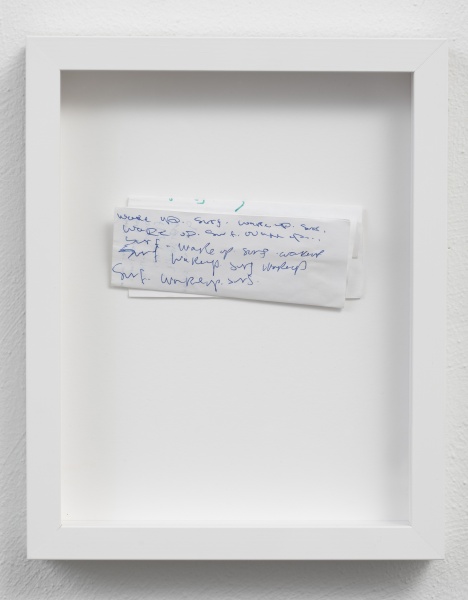 wake up. surf. wake up. surf.
wake up. surf. wake up...
surf. wake up surf wakeup
surf wakeup surf wakeup
surf. wakeup surf.